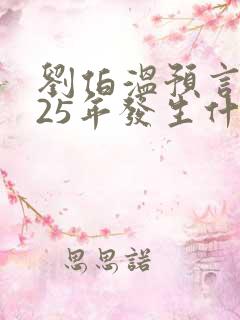 劉伯溫預言
25年發生什
思思諾